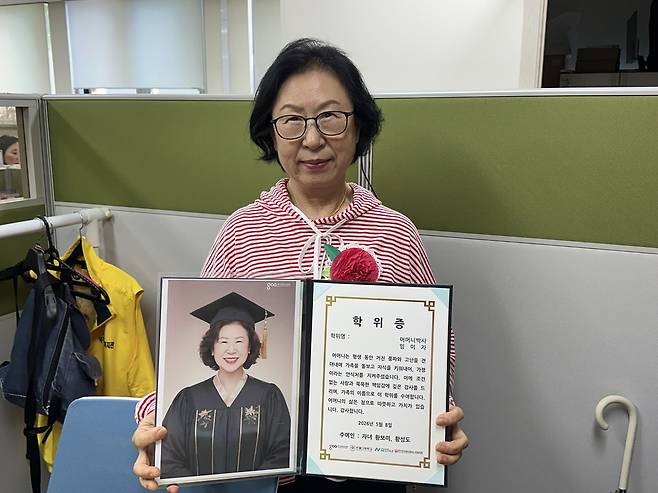 학 위 증
학위명 : 어머니박사
임 이 자
어머니는 평생 동안 거친 풍파와 고난을 견
뎌내며 가족을 돌보고 자식을 키워내고, 가정
이라는 안식처를 지켜주셨습니다. 이에 조건
없는 사랑과 묵묵한 책임감에 깊은 감사를 드
리며, 가족의 이름으로 이 학위를 수여합니다.
어머니의 삶은 참으로 따뜻하고 가치가 있습
니다. 감사합니다.
2026년 5월 8일
수여인 : 자녀 황보미, 황성도